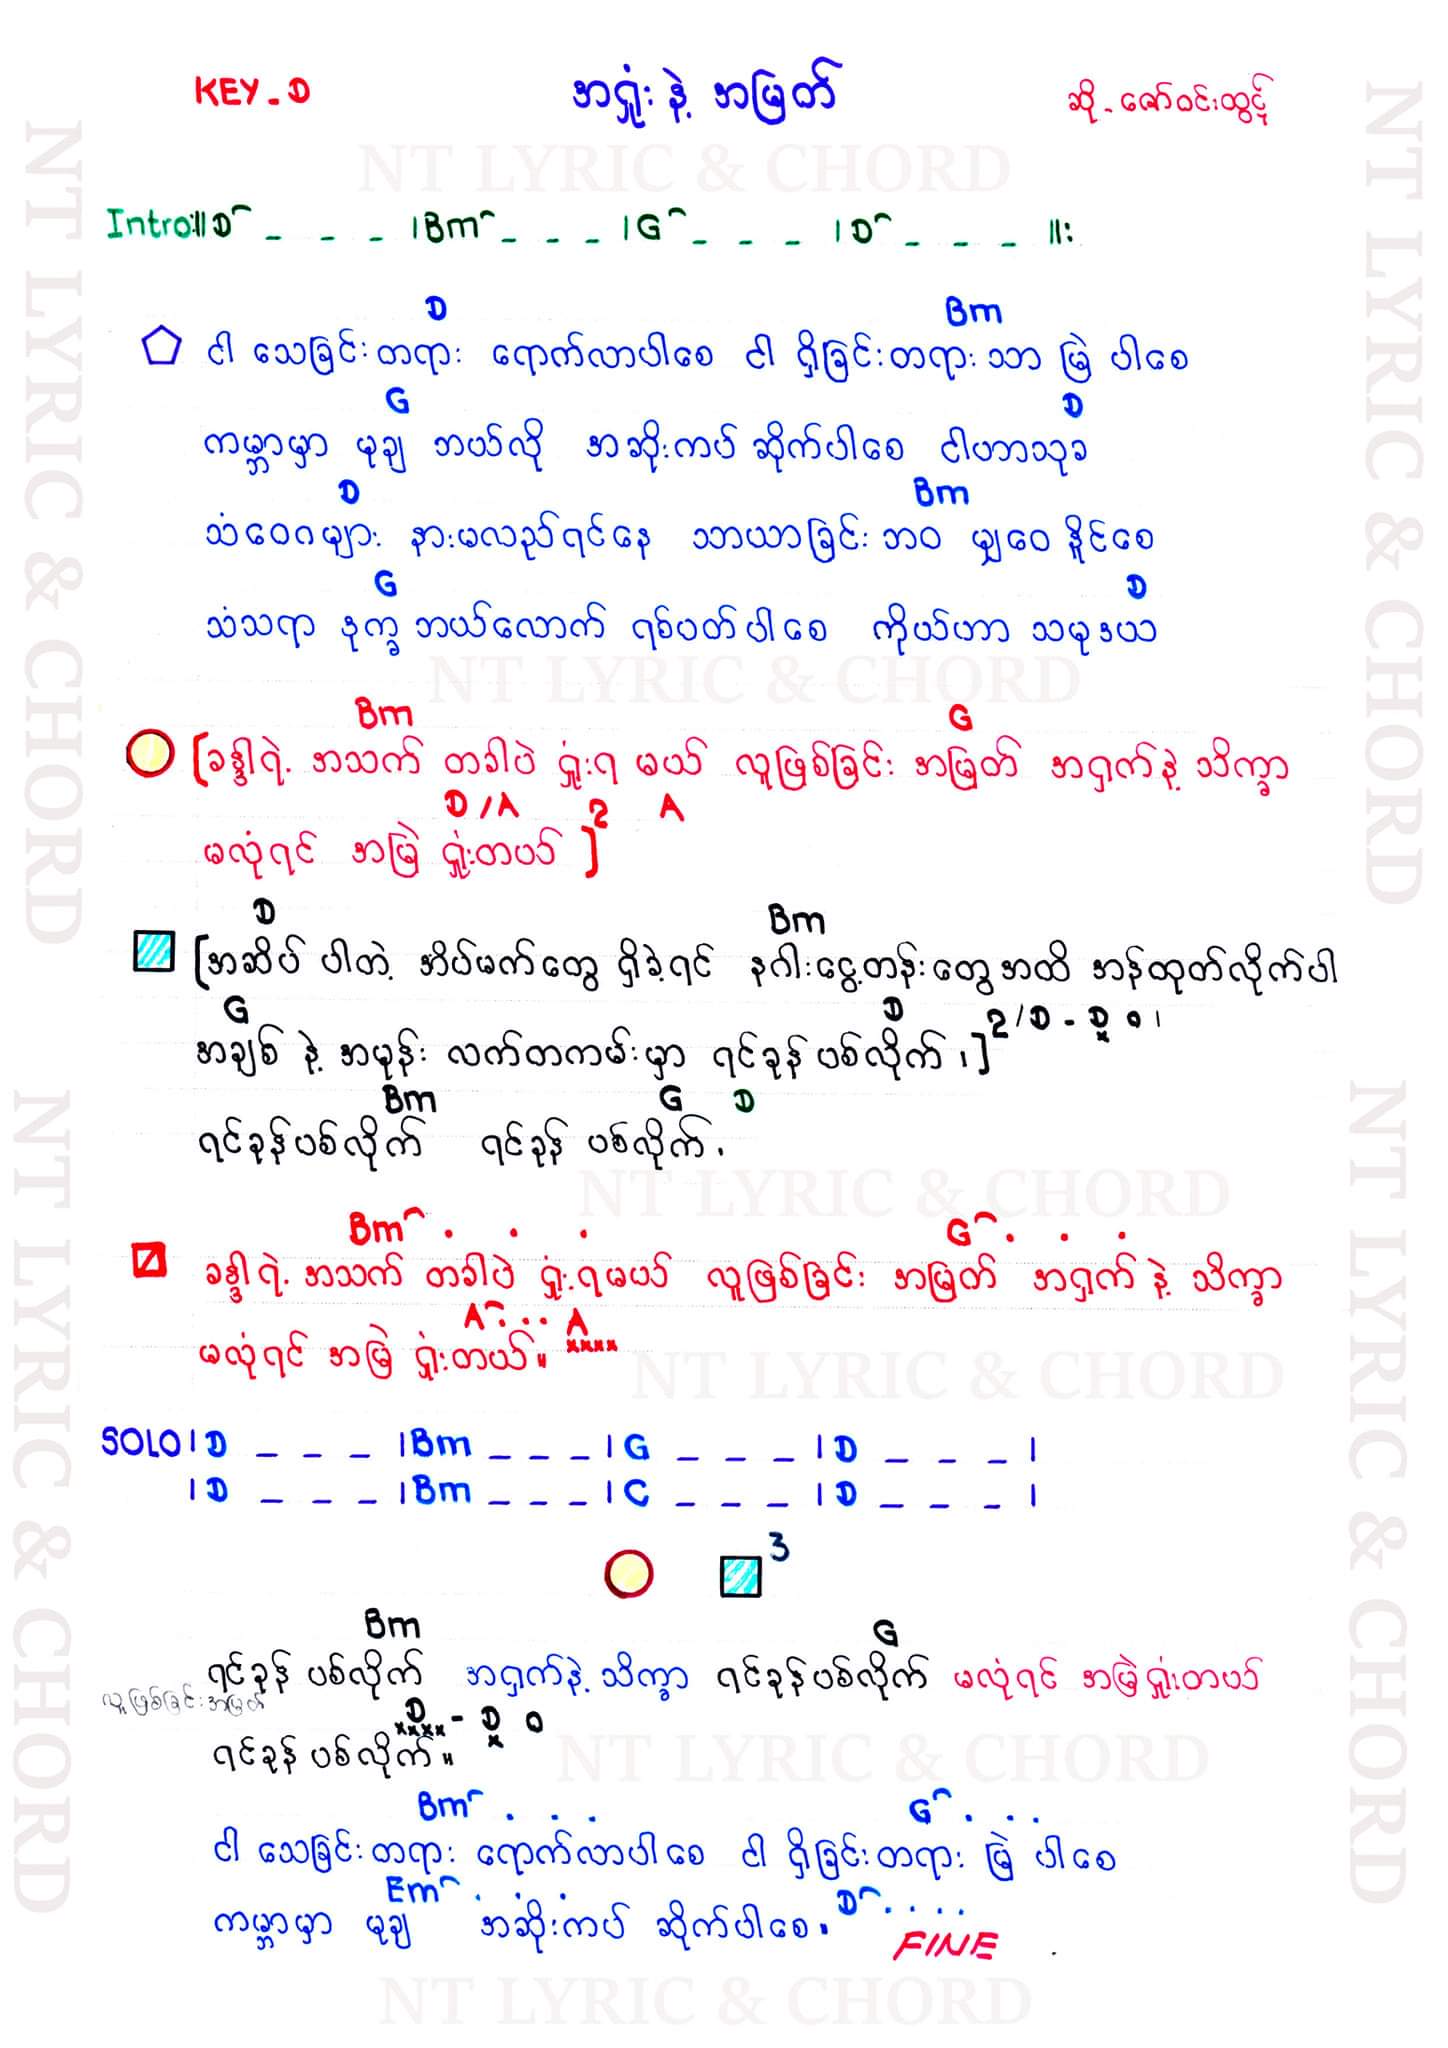 KEY - D အရှုံး နဲ့ အမြတ် ဆို - ဇော်ဝင်းထွဋ်
NT LYRIC & CHORD
Intro:|| D _ _ _ | Bm _ _ _ | G _ _ _ | D _ _ _ ||:
D Bm
ငါ သေခြင်းတရား ရောက်လာပါစေ ငါ ရှိခြင်းတရား သာ မြဲ ပါစေ
G D
ကမ္ဘာမှာ မုချ ဘယ်လို အဆိုးကပ် ဆိုက်ပါစေ ငါဟာသုခ
D Bm
သံဝေဂများ နားမလည်ရင်နေ သာယာခြင်း ဘဝ မျှဝေ နိူင်စေ
G D
သံသရာ ဒုက္ခ ဘယ်လောက် ရစ်ပတ်ပါစေ ကိုယ်ဟာ သမုဒယ
NT LYRIC & CHORD
Bm G
[ခန္ဒါရဲ့ အသက် တခါပဲ ရှုံးရ မယ် လူဖြစ်ခြင်း အမြတ် အရှက်နဲ့ သိက္ခာ
D / A 2 A
မလုံရင် အမြဲ ရှုံးတယ် ]
D Bm
[အဆိပ် ပါတဲ့ အိပ်မက်တွေ ရှိခဲ့ရင် နဂါးငွေ့တန်းတွေအထိ အန်ထုတ်လိုက်ပါ
G D 2 / D - D 0 |
အချစ် နဲ့ အမုန်း လက်တကမ်းမှာ ရင်ခုန်ပစ်လိုက် ၊]
Bm G D
ရင်ခုန်ပစ်လိုက် ရင်ခုန် ပစ်လိုက် ၊
NT LYRIC & CHORD
Bm . . . G . . .
ခန္ဒါရဲ့ အသက် တခါပဲ ရှုံးရမယ် လူဖြစ်ခြင်း အမြတ် အရှက် နဲ့ သိက္ခာ
A . . . A xxxx
မလုံရင် အမြဲ ရှုံးတယ်။
NT LYRIC & CHORD
SOLO | D _ _ _ | Bm _ _ _ | G _ _ _ | D _ _ _ |
| D _ _ _ | Bm _ _ _ | C _ _ _ | D _ _ _ |
3
Bm G
ရင်ခုန် ပစ်လိုက် အရှက်နဲ့ သိက္ခာ ရင်ခုန်ပစ်လိုက် မလုံရင် အမြဲရှုံးတယ်
လူဖြစ်ခြင်းအမြတ်
D xxxx - D x 0
ရင်ခုန် ပစ်လိုက်။
NT LYRIC & CHORD
Bm . . . G . . .
ငါ သေခြင်းတရား ရောက်လာပါစေ ငါ ရှိခြင်းတရား မြဲ ပါစေ
Em . . . D . . . .
ကမ္ဘာမှာ မုချ အဆိုးကပ် ဆိုက်ပါစေ။
FINE
NT LYRIC & CHORD
NT LYRIC & CHORD
NT LYRIC & CHORD
NT LYRIC & CHORD
NT LYRIC & CHORD